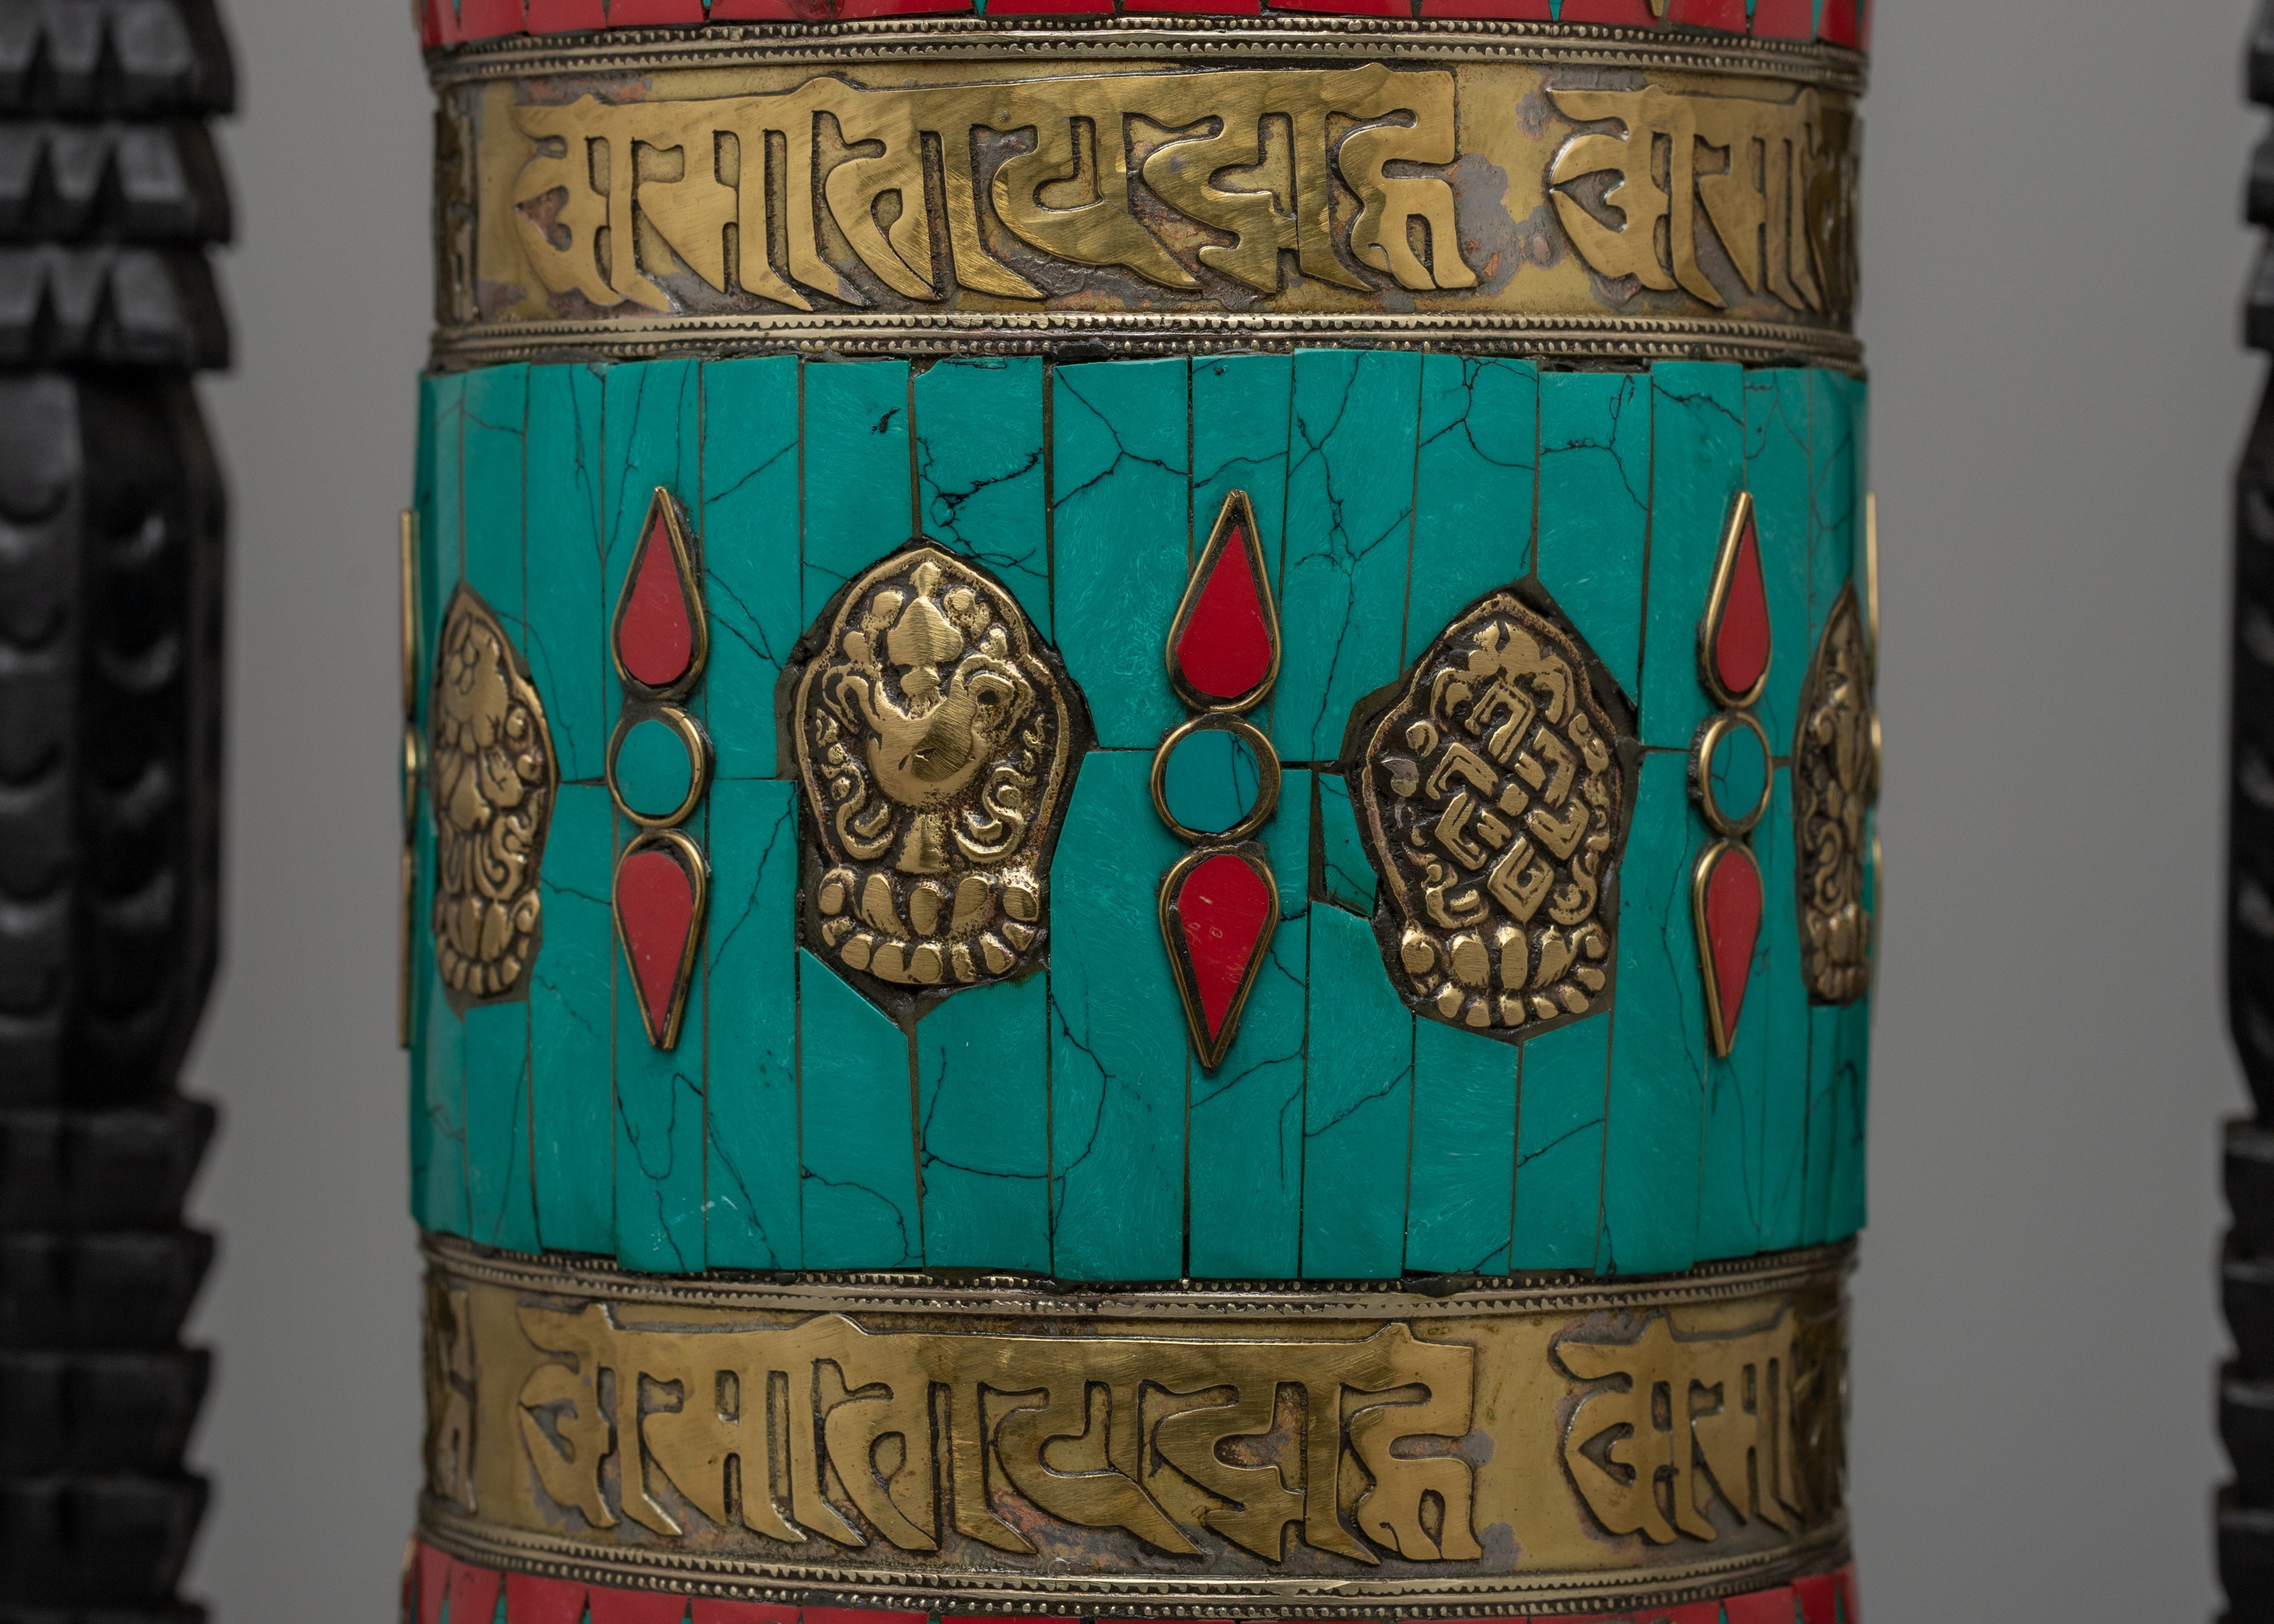 ओं मणिपद्मे हूं ओं म
ओं मणिपद्मे हूं ओं म